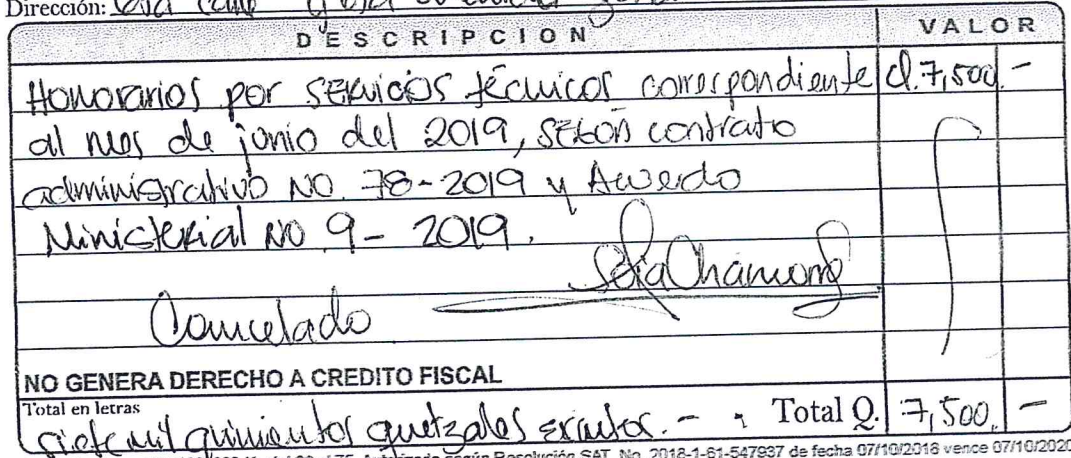 Dirección:
DESCRIPCION VALOR
Honorarios por servicios técnicos correspondiente Q.7,500 -
al mes de junio del 2019, SEGÚN contrato
administrativo NO. 78-2019 y Acuerdo
Ministerial NO 9- 2019.
Cancelado
NO GENERA DERECHO A CREDITO FISCAL
Total en letras
siete mil quinientos quetzales exactos. - Total Q. 7,500. -
Resolución SAT No. 2018-1-61-547937 de fecha 07/10/2018 vence 07/10/2020